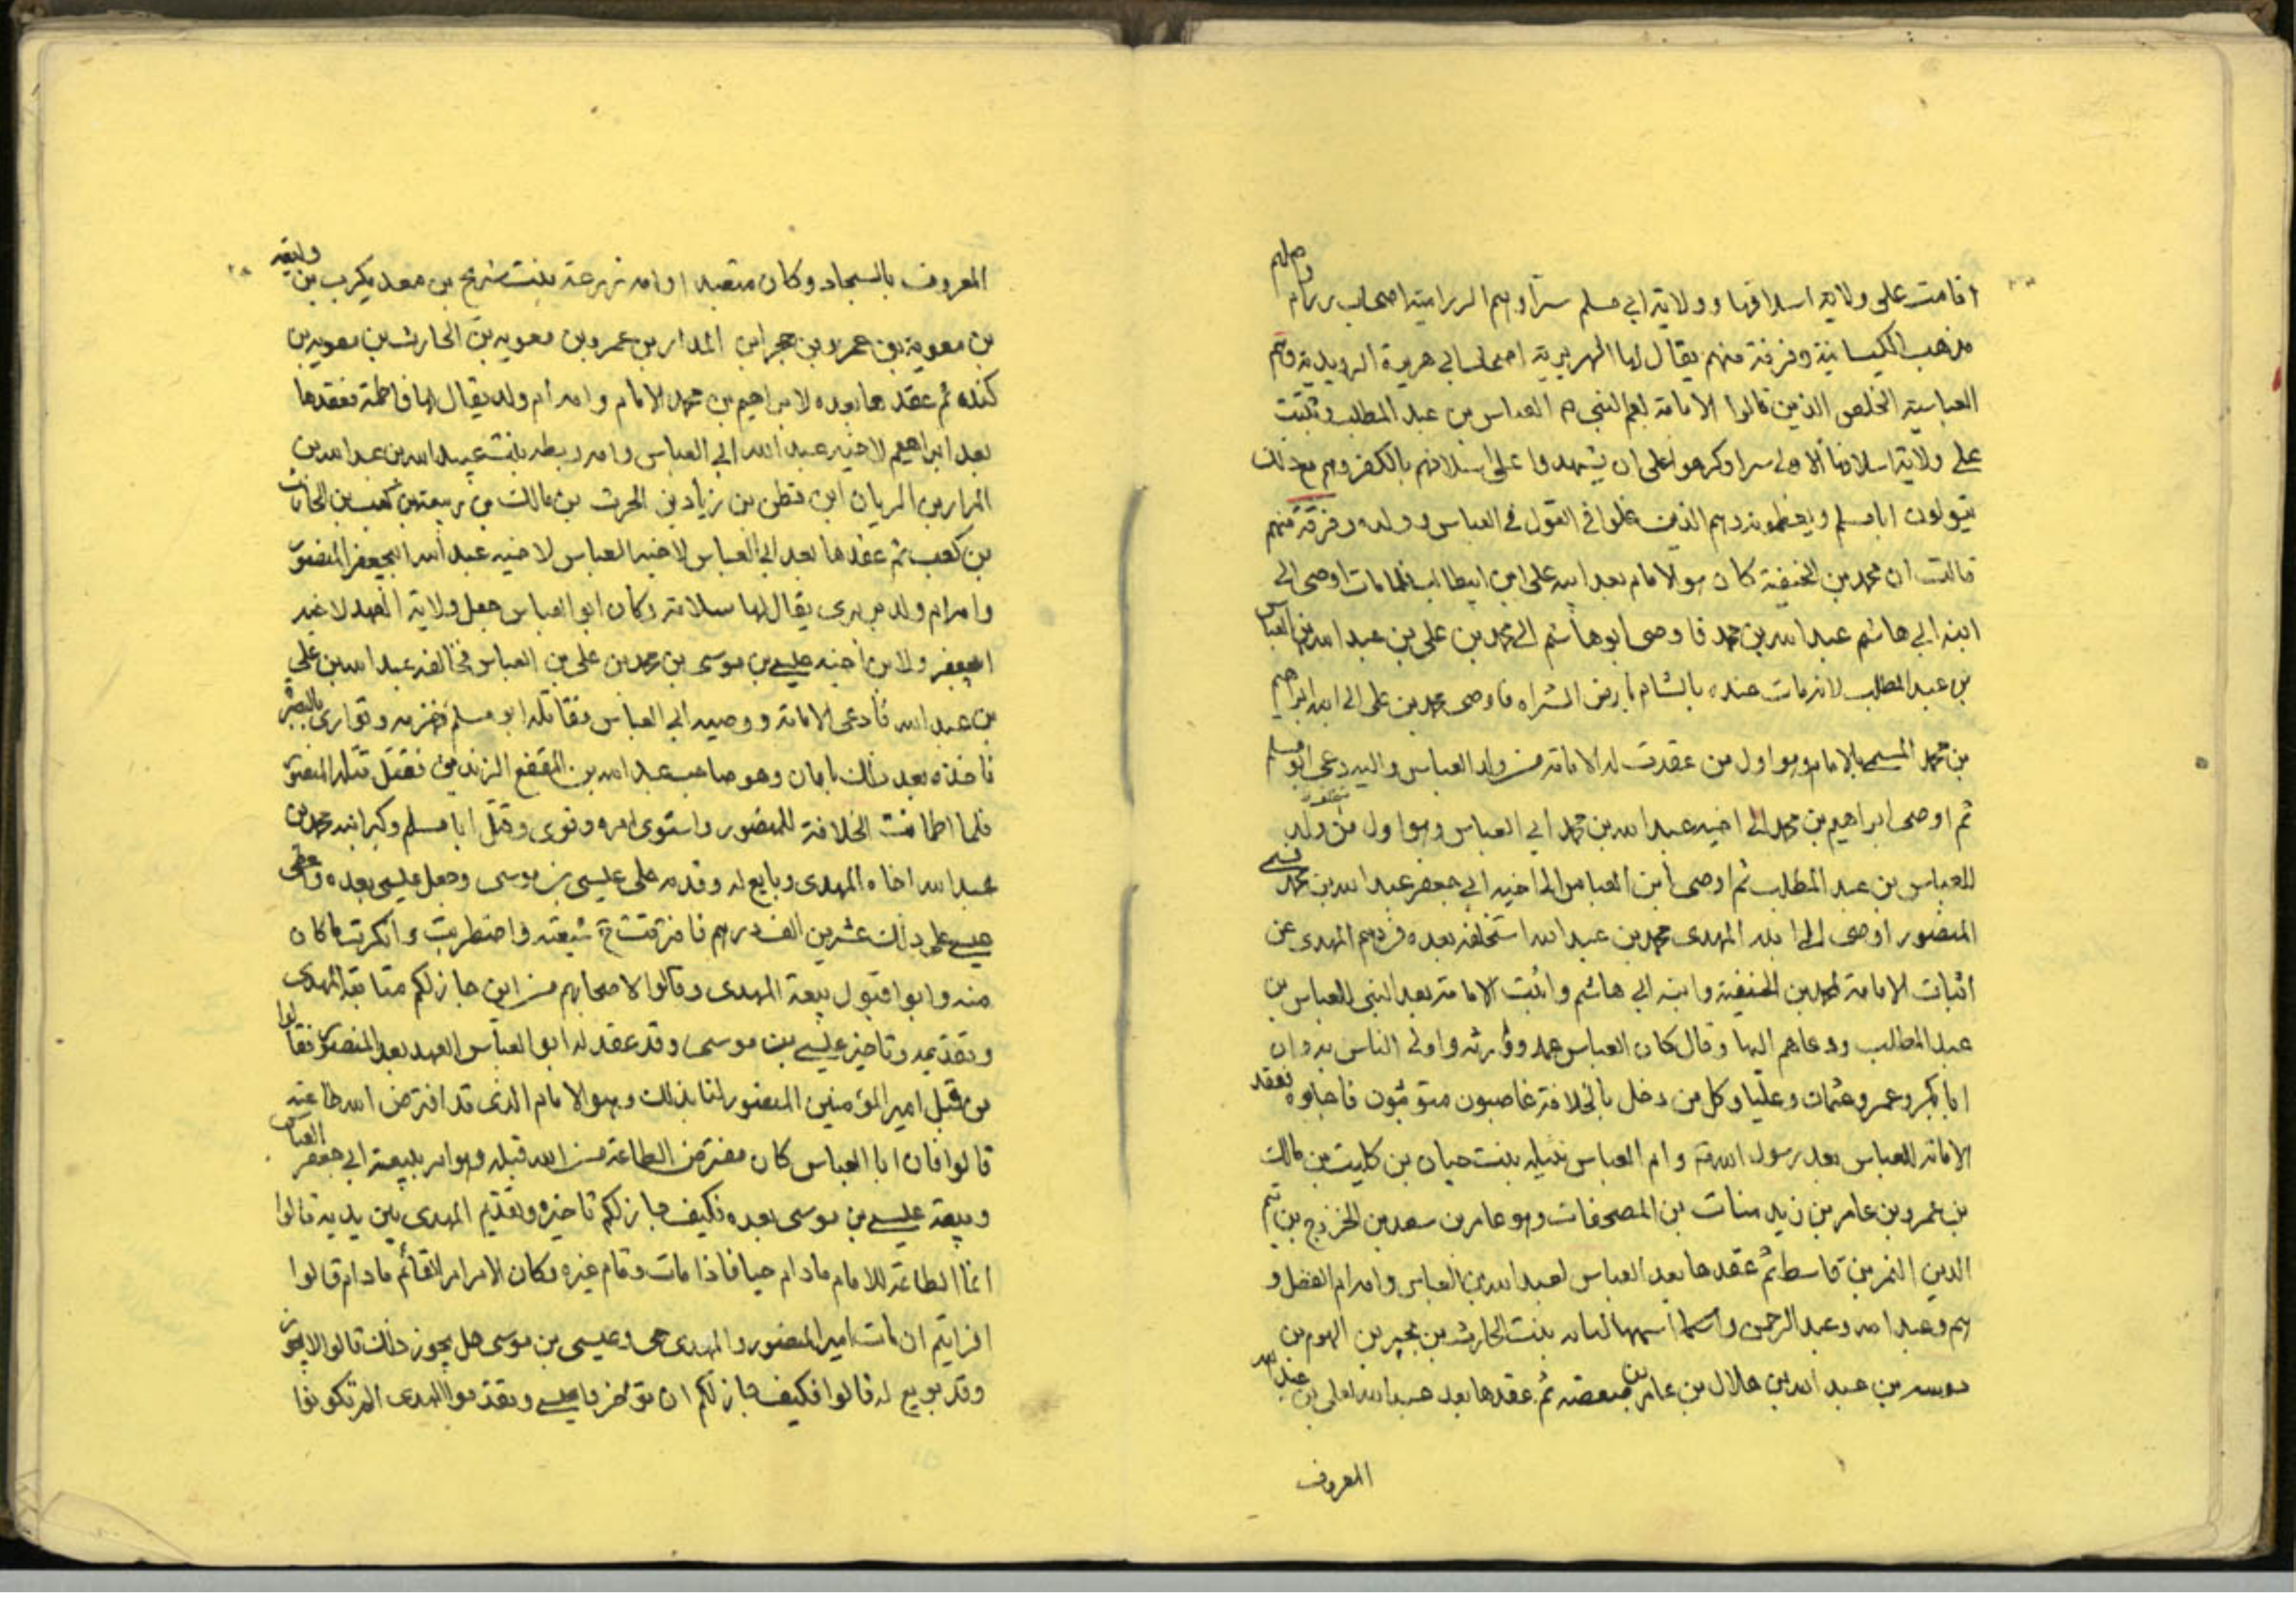 اقامت على ولاية اسلافها وولاية ابي مسلم سرا وهم الرزامية اصحاب رزام واصلهم
مذهب الكيسانية وفرقة منهم يقال لها الهريرية اصحاب ابي هريرة الرويدية وهم
العباسية الخلص الذين قالوا الامامة لعم النبي ص العباس بن عبد المطلب وثبتت
على ولاية اسلافها الاولى سرا وكرهوا على ان يشهدوا على اسلافهم بالكفر وهم مع ذلك
يتولون ابا مسلم ويعظمونه وهم الذين غلوا في القول في العباس وولده وفرقة منهم
قالت ان محمد بن الحنفية كان هو الامام بعد ابيه على ابن ابيطالب فلما مات اوصى الى
ابنه ابي هاشم عبد الله بن محمد فاوصى ابو هاشم الى محمد بن على بن عبد الله بن العباس
بن عبد المطلب لانه مات عنده بالشام بارض الشراه فاوصى محمد بن على الى ابنه ابراهيم
بن محمد المسمى بالامام وهو اول من عقدت له الامامة من ولد العباس واليه دعى ابو مسلم
ثم اوصى ابراهيم بن محمد الى اخيه عبد الله بن محمد ابي العباس وهو اول من ولد
للعباس بن عبد المطلب ثم اوصى ابن العباس الى اخيه ابي جعفر عبد الله بن محمد
المنصور اوصى الى ابنه المهدى محمد بن عبد الله استخلفه بعده فردهم المهدى عن
اثبات الامامة لمحمد بن الحنفية وابنه ابي هاشم واثبت الامامة بعد النبي للعباس بن
عبد المطلب ودعاهم اليها وقال كان العباس عمه ووارثه واولى الناس به وان
ابا بكر وعمر وعثمان وعليا وكل من دخل بالخلافة غاصبون متوثبون فاجابوه فعقد
الامامة للعباس بعد رسول الله ص وام العباس نثيله بنت حيان بن كليب بن مالك
بن عمرو بن عامر بن زيد منات بن المصحفات وهو عامر بن سعد بن الخزرج بن تيم
الدين النمر بن قاسط ثم عقدها بعد العباس لعبد الله بن العباس وامه ام الفضل و
عبد الله وعبد الرحمن واسمها لبابه بنت الحارث بن بجير بن الهرم بن
بن عبد الله بن هلال بن عامر بن صعصه ثم عقدها بعد عبد الله لعلى بن عبد الله
المعروف
المعروف بالسجاد وكان متعبدا وامه زرعة بنت شريح بن معد يكرب بن وليعه
بن معوية بن عمرو بن حجر ابن المدار بن عمرو بن معويه بن الحارث بن معويه بن
كنده ثم عقدها بعده لابراهيم بن محمد الامام وامه ام ولد يقال لها فاطمة فعقدها
بعد ابراهيم لاخيه عبد الله ابي العباس وامه ريطه بنت عبيد الله بن عبد الله بن
المدار بن الريان ابن قطن بن زياد بن الحرث بن مالك بن ربيعة بن كعب بن الحارث
بن كعب ثم عقدها بعد ابي العباس لاخيه العباس لاخيه عبد الله ابيجعفر المنصور
وامه ام ولد بربرى يقال لها سلامة وكان ابو العباس جعل ولاية العهد لاخيه
ابيجعفر ولابن اخيه عيسى بن موسى بن محمد بن على بن العباس فخالفه عبد الله بن على
بن عبد الله فادعى الامامة ووصيه ابي العباس فقاتله ابو مسلم فهزمه وتوارى بالبصره
فاخذه بعد ذلك بامان وهو صاحب عبد الله بن المقفع الزنديق فقتل قتله المنصور
فلما اطمانت الخلافة للمنصور واستوى امره وقوى وقتل ابا مسلم وكبر ابنه محمد بن
عبد الله اخاه المهدى وبايع له وقدمه على عيسى بن موسى وجعل عيسى بعده واعطى
عيسى على ذلك عشرين الف درهم فافترقت ح شيعته واضطربت وانكرت ما كان
منه وابوا قبول بيعة المهدى وقالوا لاصحابهم من اين جاز لكم متابعة المهدى
وتقديمه وتاخير عيسى بن موسى وقد عقد له ابو العباس العهد بعد المنصور فقالوا
من قبل امير المؤمنين المنصور لنا بذلك وهو الامام الذى قد افترض الله طاعته
قالوا فان ابا العباس كان مفترض الطاعة من الله قبله وهو امر ببيعة ابي جعفر العباس
وبيعة عيسى بن موسى بعده فكيف جاز لكم تاخيره وتقديم المهدى بين يديه قالوا
انما الطاعة للامام مادام حيا فاذا مات وقام غيره وكان الامر امر القائم مادام قالوا
افرايتم ان مات امير المنصور والمهدى حى وعيسى بن موسى هل يجوز ذلك قالوا لا يجوز
وقد بويع له قالوا فكيف جاز لكم ان تؤخروا عيسى وتقدموا المهدى